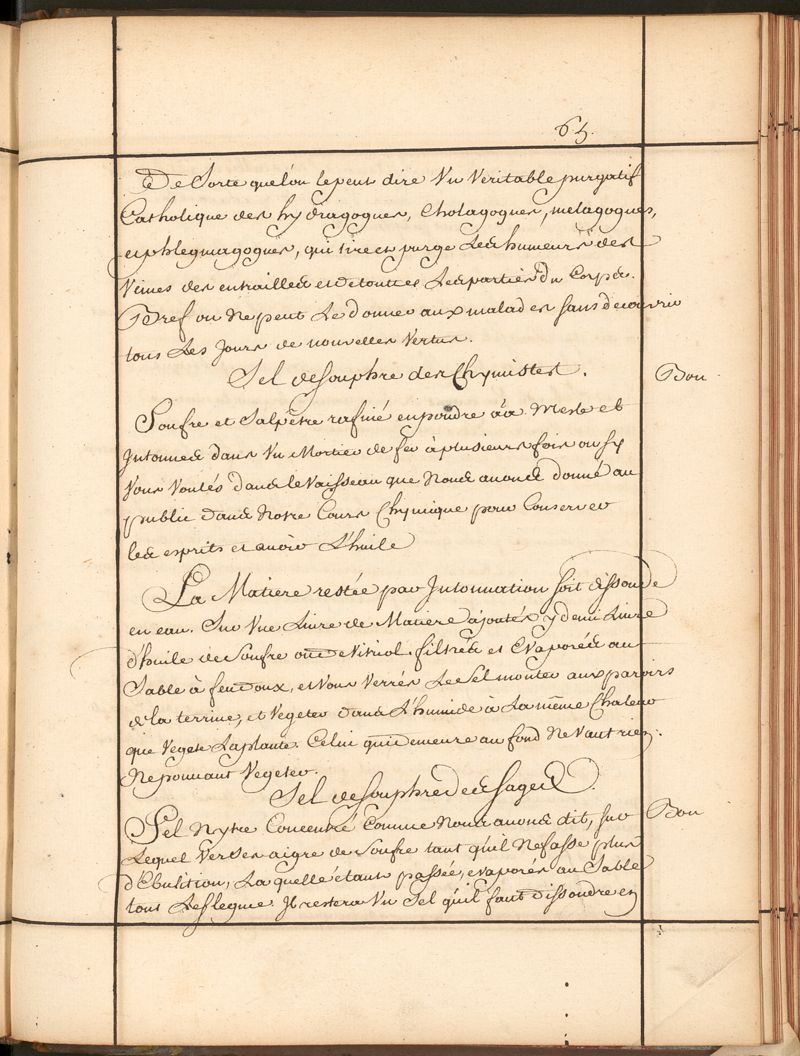 65.
De Sorte que l'on le peut dire Vn Veritable purgatif
Catholique des hydragogues, Cholagogues, melagogues,
et phlegmagogues, qui tire et purge Les humeurs des
Veines des entrailles et de toutes Les parties Du Corps.
Bref on Ne peut Le donner aux malades sans decouvrir
tous Les Jours de nouvelles Vertus.
Sel de souphre des Chymistes.
Bon
Soufre et Salpêtre rafiné en poudre ââ Mesle et
Jntonnes dans Vn Mortier de fer à plusieurs fois ou sy
Vous Voulés dans le Vaisseau que Nous auons donné au
public dans Notre Cours Chymique pour Conserver
les esprits et auoir L'huile
La Matiere restée par Jntonnation soit dissoude
en eau. Sur Vne Liure de Matiere ajoutés y demi Liure
d'huile de Soufre ou de Vitriol. filtrés et Evaporés au
Sable à feu doux, et Vous Verrés Le Sel monter aux parois
de la terrine, et Vegeter dans L'humide à La même Chaleur
que Vegete La plante. Celui qui demeure au fond Ne Vaut rien
Ne pouuant Vegeter.
Sel de souphre des sages.
Sel Nytre Concentré Comme Nous auons dit, sur
Bon
Lequel Versés aigre de Soufre tant qu'il Ne fasse plus
d'Ebulition, La quelle étant passée, evaporés au Sable
tout Le flegme Il restera Vn Sel qu'il faut Dissoudre en